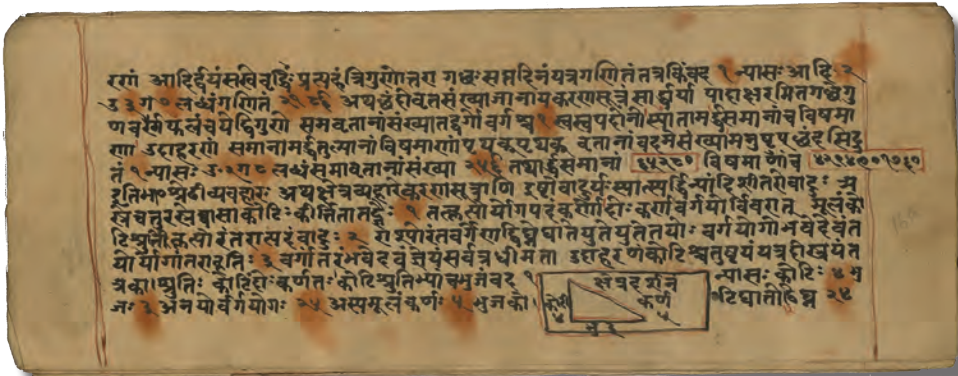 रणां आदिर्द्वयंसखेवृद्धिः प्रत्यहंत्रिगुणोत्तरा गच्छः सप्तदिनंयत्रगणितंतत्रकिंवद १ न्यासः आदि २
उ ३ ग ७ लब्धंगणितं २१८६ अथछंदोवृतसंख्याज्ञानायकरणसूत्रंसार्द्धार्या पादाक्षरमितगच्छेगु
णवर्गफलंचयेद्विगुणे समवृतानांसंख्यातद्वर्गोवर्ग स्वस्वपदोनौस्यातामर्द्धसमानांचविषमा
णां उदाहरणं समानामर्द्धतुल्यानांविषमाणांपृथक्पृथक् वृतानांवदमेसंख्यामनुष्टुप्छंदसिद्रु
तं १ न्यासः उ २ ग ८ लब्धंसमावृतानांसंख्या २५६ तथार्द्धसमानां ६५२८० विषमाणांच ४२९४९०१७६०
इतिश्रेढीव्यवहारः अथक्षेत्रव्यवहारेकरणसूत्राणि इष्टोबाहुर्यःस्यात्स्पर्द्धिन्यांदिशीतरोबाहुः त्र्य
स्रेचतुरस्रेवासाकोटिः कीर्तितातज्ज्ञैः १ तत्कृत्योर्योगपदंकर्णोदोः कर्णवर्गयोर्विवरात् मूलंको
टिश्रुतीकृत्योरंतरात्पदंबाहुः २ राश्योरंतरवर्गेणद्विघ्नेघातेयुतेयुतेतयोः वर्गयोगोभवेदेवंत
योर्योगांतराहतिः ३ वर्गांतरंभवेदेवंज्ञेयंसर्वत्रधीमता उदाहरणंकोटिश्चतुष्टयंयत्रदोस्त्रयंत
त्रकाश्रुतिः कोटिंदोः कर्णतः कोटिश्रुतिभ्यांचभुजंवद १ न्यासः कोटिः ४ भु
जः ३ अनयोर्वर्गयोगः २५ अस्यमूलंकर्णः ५ भुजको टिघातोद्विघ्न २४
क्षेत्रदर्शनं
कर्ण ५
को ४
भु ३